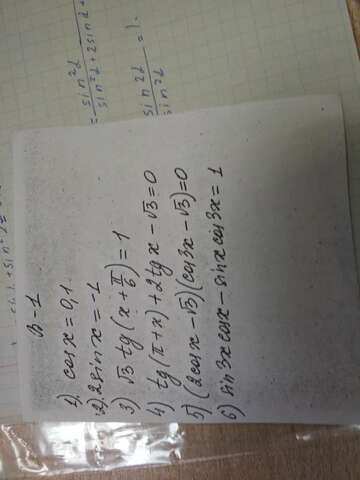 В-1
1). cosx = 0,1
2). 2sinx = -1
3) √3 tg(x + π/6) = 1
4) tg(π + x) + 2tgx - √3 = 0
5) (2cosx - √3)(cos3x - √3) = 0
6) sin3x cosx - sinx cos3x = 1
= sin²α / sin²α + 2sinα
sin2α / sin2α = 1.